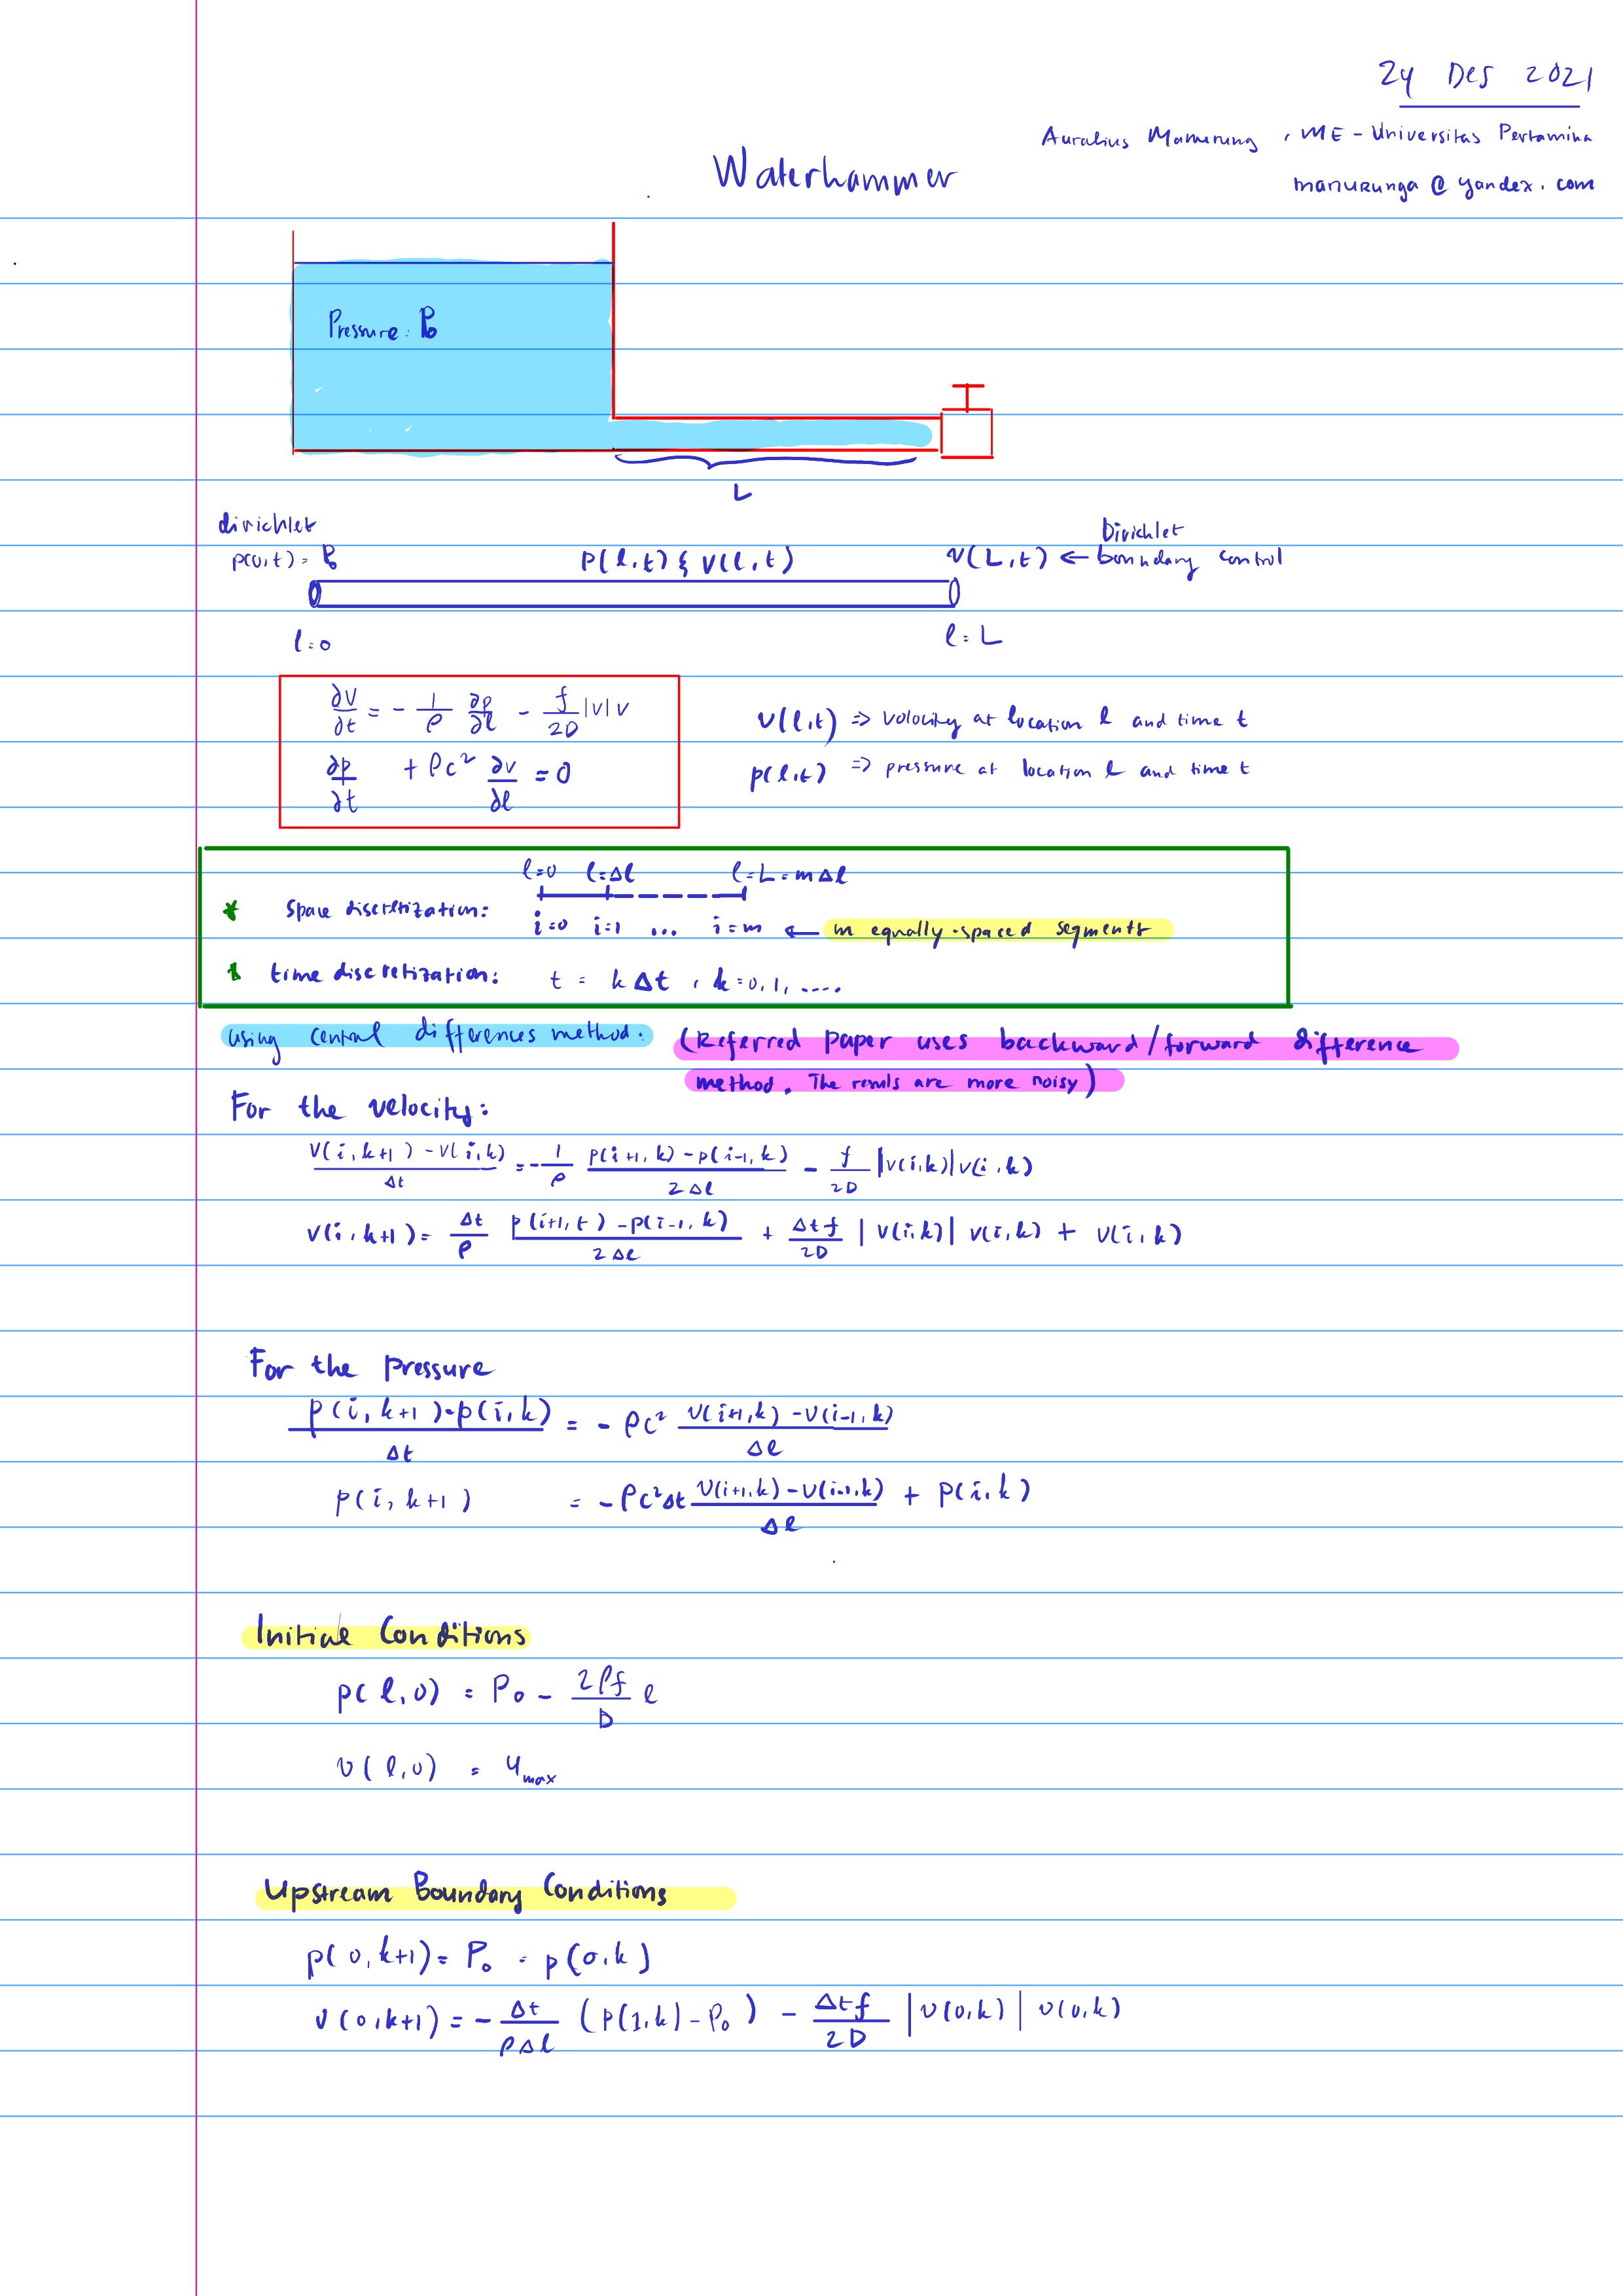 24 Des 2021
Auralius Manurung, ME - Universitas Pertamina
manurunga@yandex.com
Waterhammer
Pressure: P₀
L
dirichlet
p(0,t) = P₀
p(l,t) & v(l,t)
Dirichlet
v(L,t) ← boundary control
l=0
l=L
∂v/∂t = - 1/ρ ∂p/∂l - f/2D |v|v
v(l,t) => velocity at location l and time t
∂p/∂t + ρc² ∂v/∂l = 0
p(l,t) => pressure at location l and time t
l=0 l=Δl l=L=mΔl
* Space discretization:
i=0 i=1 ... i=m ← m equally-spaced segments
* time discretization: t = kΔt, k=0,1,....
using central differences method: (Referred paper uses backward/forward difference
method. The results are more noisy)
For the velocity:
(v(i,k+1) - v(i,k))/Δt = - 1/ρ (p(i+1,k) - p(i-1,k))/2Δl - f/2D |v(i,k)|v(i,k)
v(i,k+1) = Δt/ρ (p(i+1,t) - p(i-1,k))/2Δl + Δtf/2D |v(i,k)| v(i,k) + v(i,k)
For the pressure
(p(i,k+1) - p(i,k))/Δt = - ρc² (v(i+1,k) - v(i-1,k))/Δl
p(i,k+1) = - ρc²Δt (v(i+1,k) - v(i-1,k))/Δl + p(i,k)
Initial Conditions
p(l,0) = P₀ - 2ρf/D l
v(l,0) = u_max
Upstream Boundary Conditions
p(0,k+1) = P₀ = p(0,k)
v(0,k+1) = - Δt/ρΔl (p(1,k) - P₀) - Δtf/2D |v(0,k)| v(0,k)